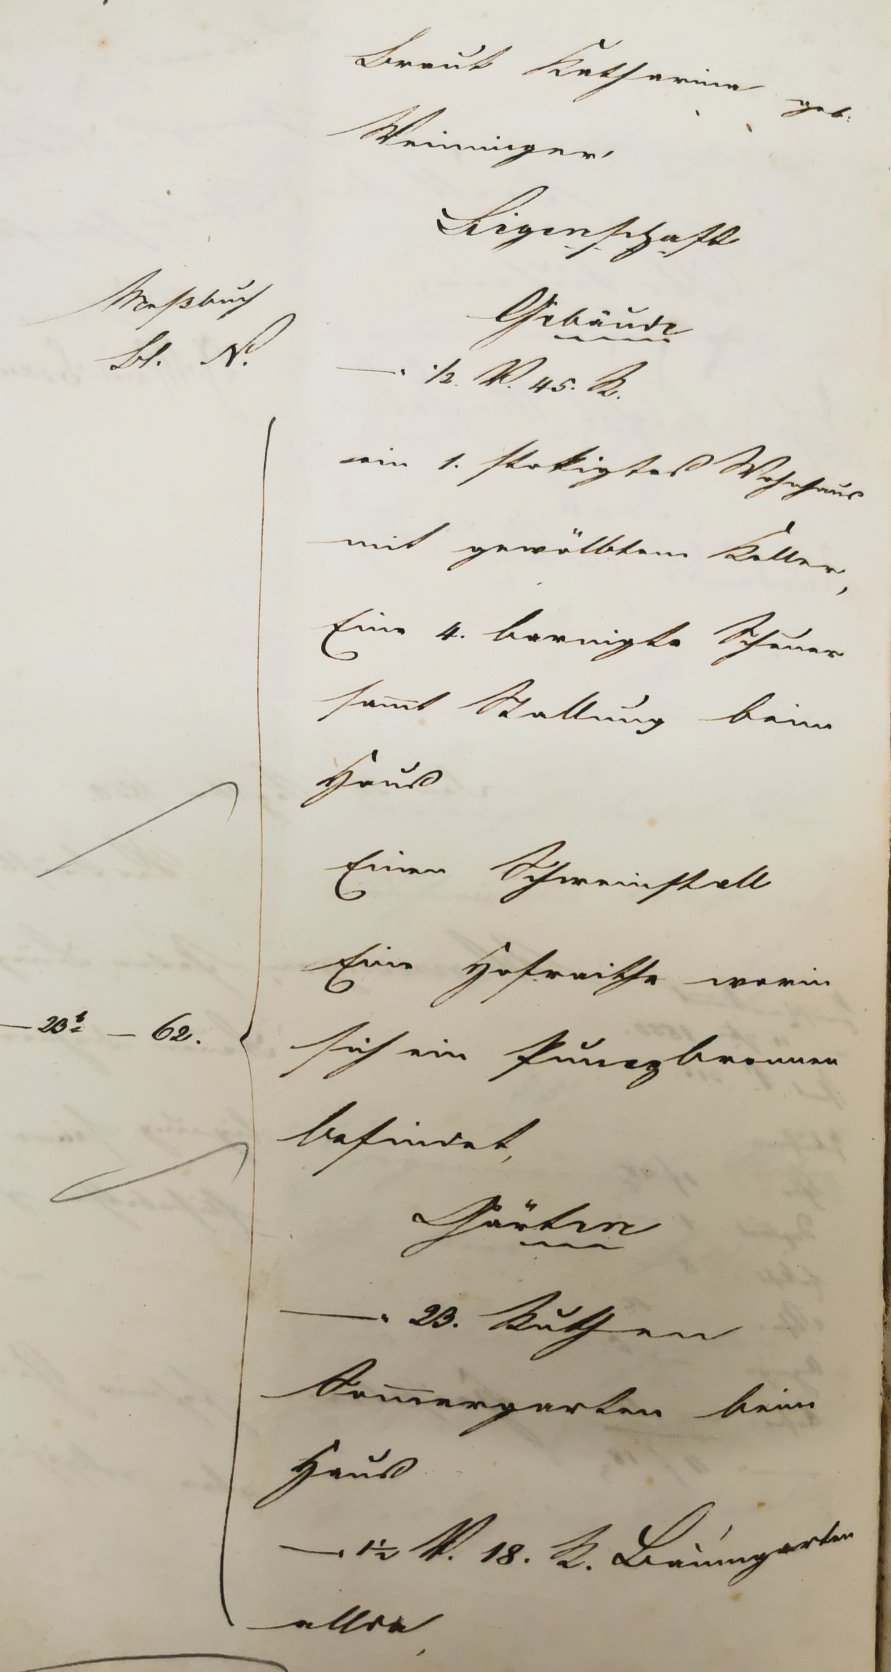 Braut Katharina geb:
Weinninger,
Liegenschaft
Gebäude
Meßbuch
Bl. N.
—. ½. V. 45. R.
ein 1. stokigtes Wohnhaus
mit gewölbtem Keller,
Eine 4. barnigte Scheuer
samt Stallung beim
Haus
Einen Schweinstall
Eine Hofraithe worin
— 23 — 62.
sich ein Pumpbronnen
befindet,
Gärten
—. 23. Ruthen
Sommergarten beim
Haus
—. 1½ V. 18. R. Baumgarten
allda,